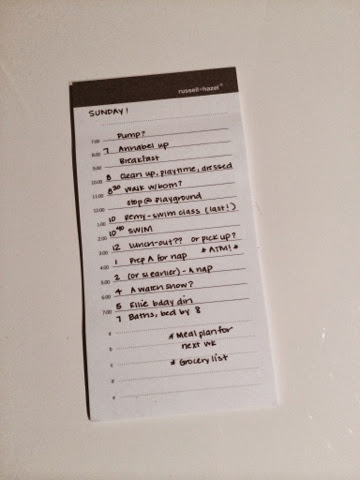 russell+hazel
SUNDAY!
7:00 Pump?
7 Annabel up
8:00 Breakfast
9:00
8 clean up, playtime, dressed
10:00
8³⁰ walk w/bom?
11:00
12:00 stop @ playground
1:00
10 Remy - swim class (last!)
10⁴⁰ SWIM
2:00
12 lunch-out?? or pick up?
3:00
1 Prep A for nap * ATM! *
4:00
2 (or st earlier) - A nap
5:00
4 A watch show?
6:00
5 Ellie bday din
7:00
7 Baths, bed by 8
* Meal plan for
next wk
* Grocery list